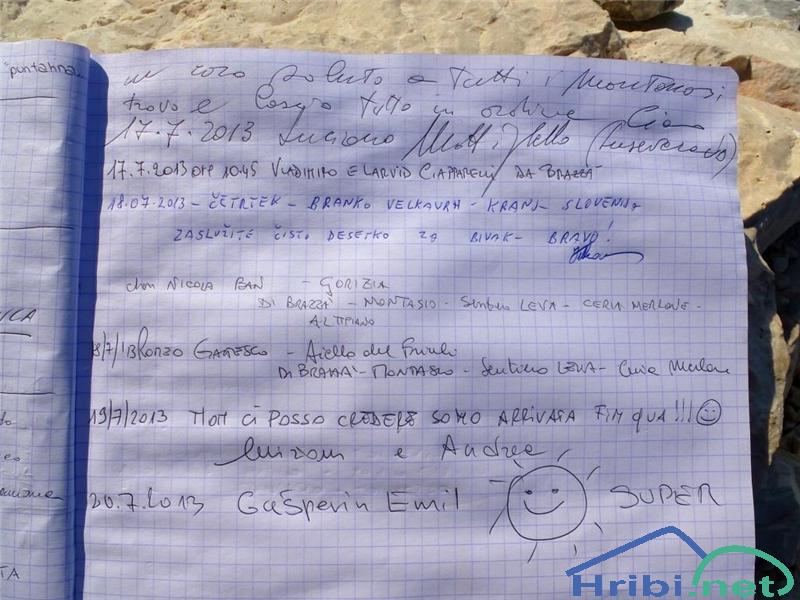 "puntahna
un caro saluto a tutti i montanosi
trovo e lascio tutto in ordine Ciao
17.7.2013 Luciano
17.7.2013 ORE 10.45 VLADIMIRO E LARVID CIAPPARELLI DA BRAZZÀ
18.07.2013 - ČETRTEK - BRANKO VELKAVRH - KRANJ - SLOVENIJA
ZASLUŽITE ČISTO DESETKO ZA BIVAK - BRAVO!
don NICOLA BAN - GORIZIA
DI BRAZZÀ - MONTASIO - Sentiero LEVA - CERIA MERLONE -
ALTIPIANO
/7/13 GAMESCO - Aiello del Friuli
DI BRAZZÀ - MONTASIO - Sentiero LEVA - Ceria Merlone
19/7/2013 NON CI POSSO CREDERE SONO ARRIVATA FIN QUA!!!
e Andrea
20.7.2013 Gašperin Emil SUPER
Hribi.net